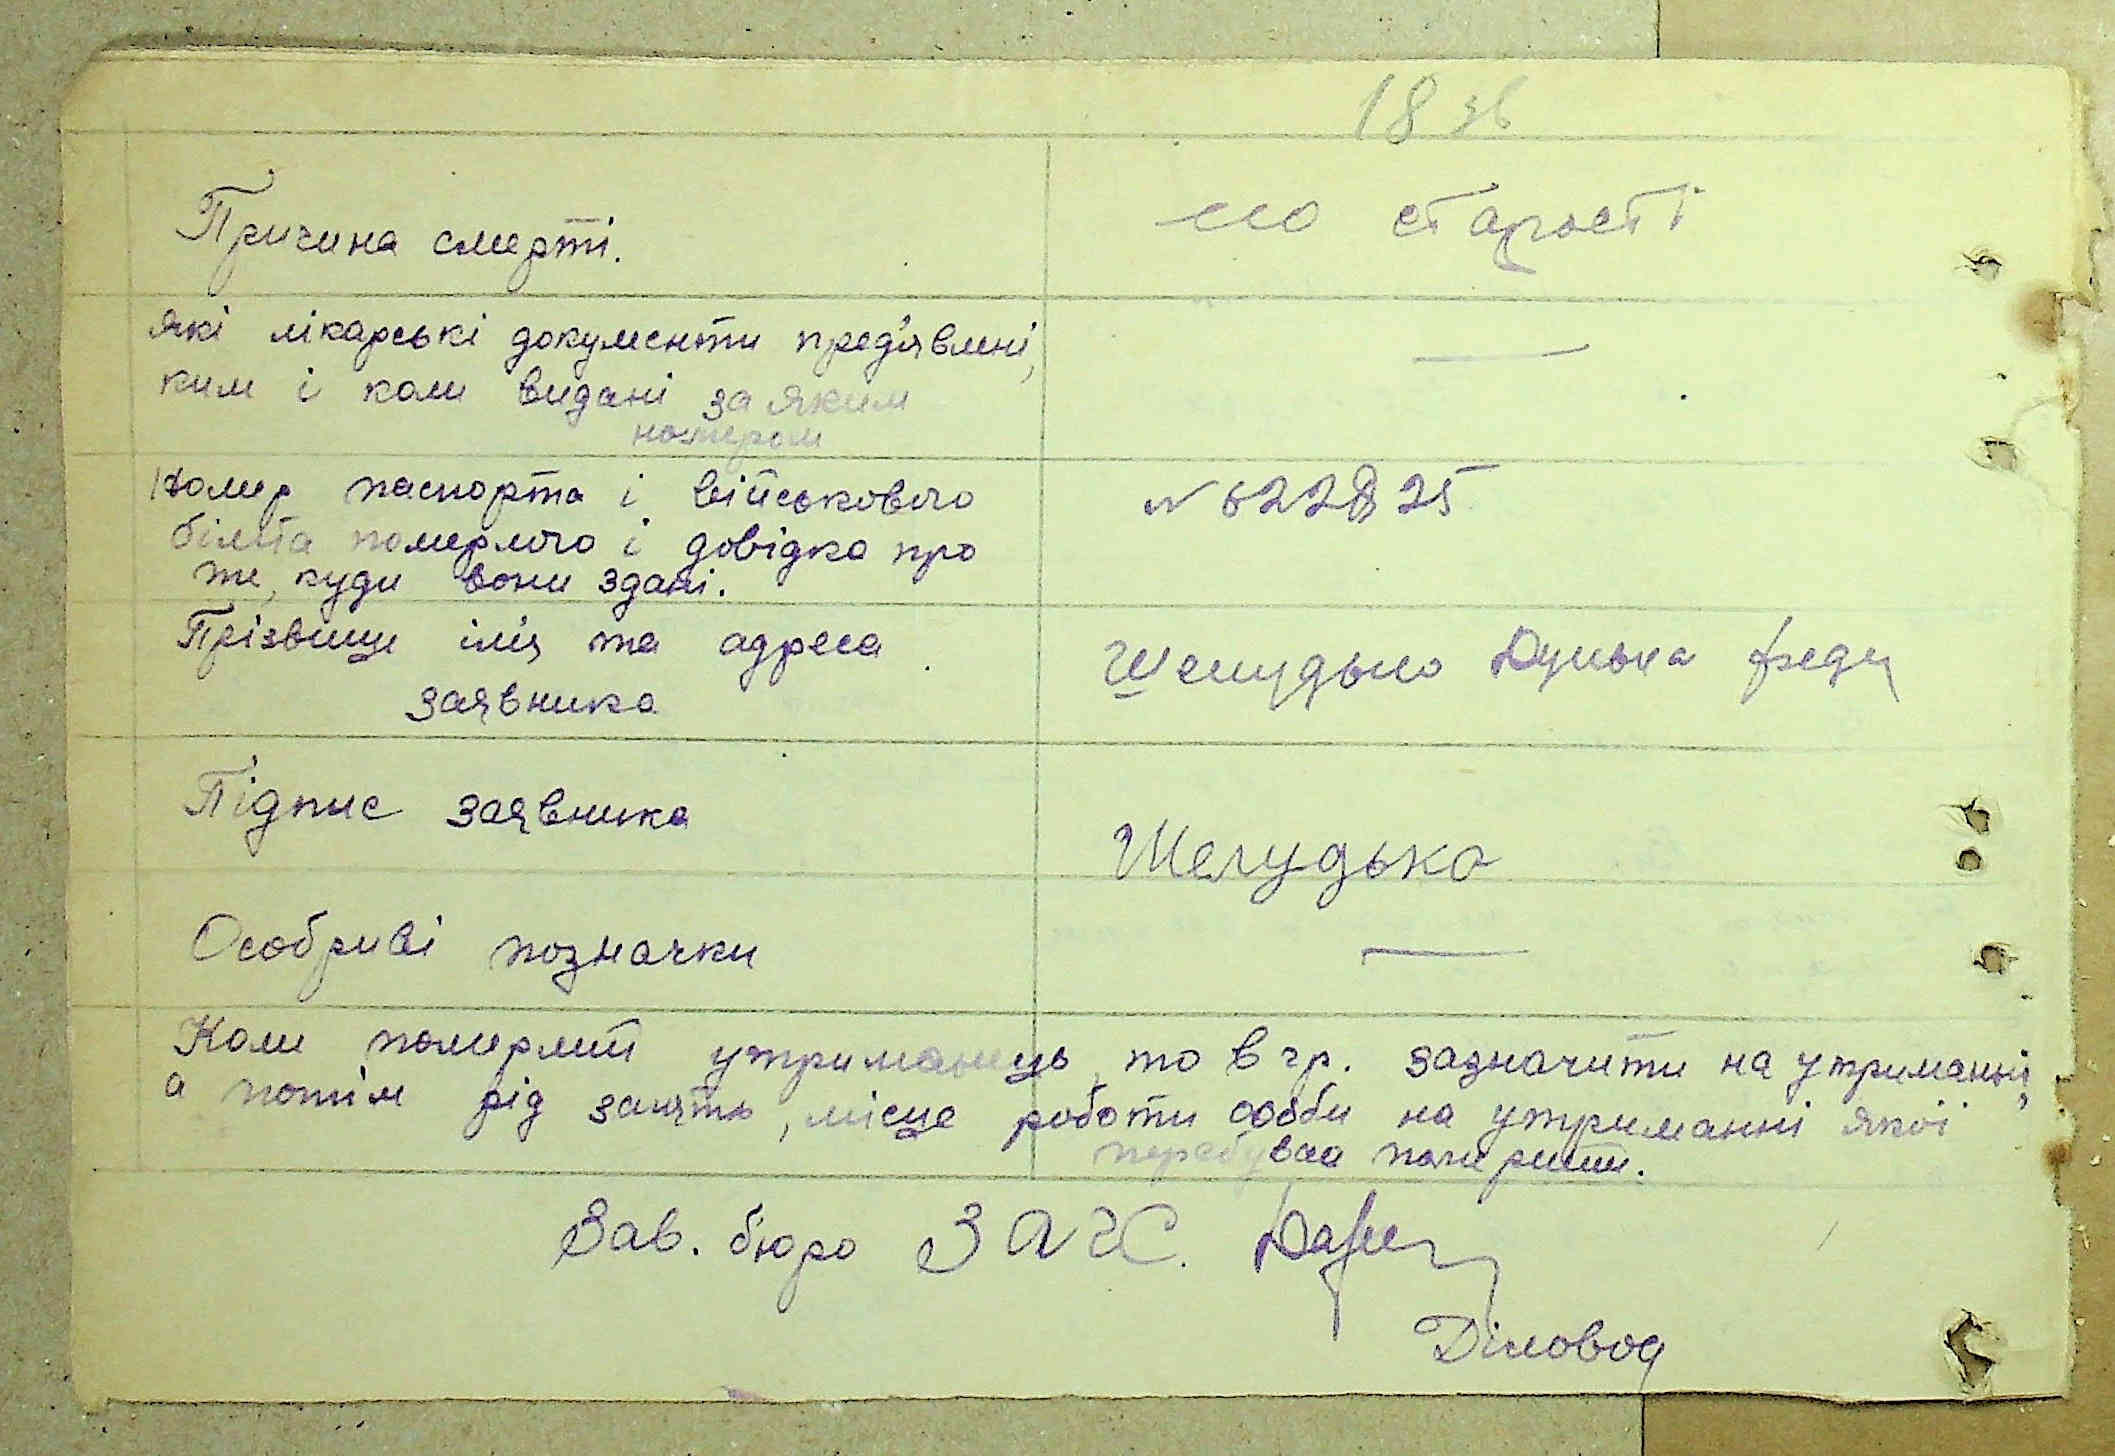 18 зв
Причина смерті.
по старості
Які лікарські документи пред'явлені,
ким і коли видані за яким
номером
—
Номер паспорта і військового
білета померлого і довідка про
те, куди вони здані.
N 622825
Прізвище ім'я та адреса
заявника
Шелудько Дунька
Підпис заявника
Шелудько
Особриві позначки
—
Коли померлий утриманець, то в гр. зазначити на утриманні,
а потім рід занять, місце роботи особи на утриманні якої
перебував померший.
Зав. бюро ЗАГС.
Діловод